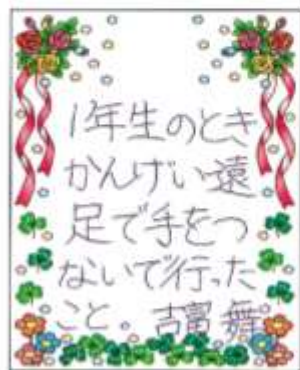 1年生のとき
かんげい遠
足で手をつ
ないで行った
こと。吉富 舞